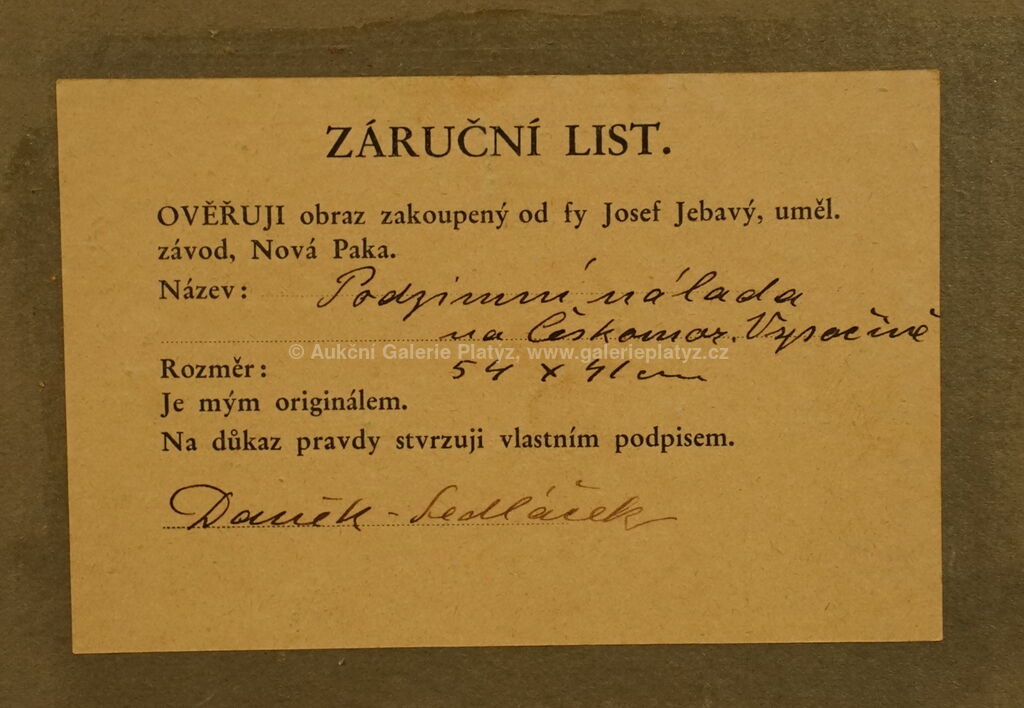 ZÁRUČNÍ LIST.
OVĚŘUJI obraz zakoupený od fy Josef Jebavý, uměl.
závod, Nová Paka.
Název: Podzimní nálada
na Českomor. Vysočině
© Aukční Galerie Platýz, www.galerieplatyz.cz
Rozměr: 54 x 41 cm
Je mým originálem.
Na důkaz pravdy stvrzuji vlastním podpisem.
Daněk-Sedláček